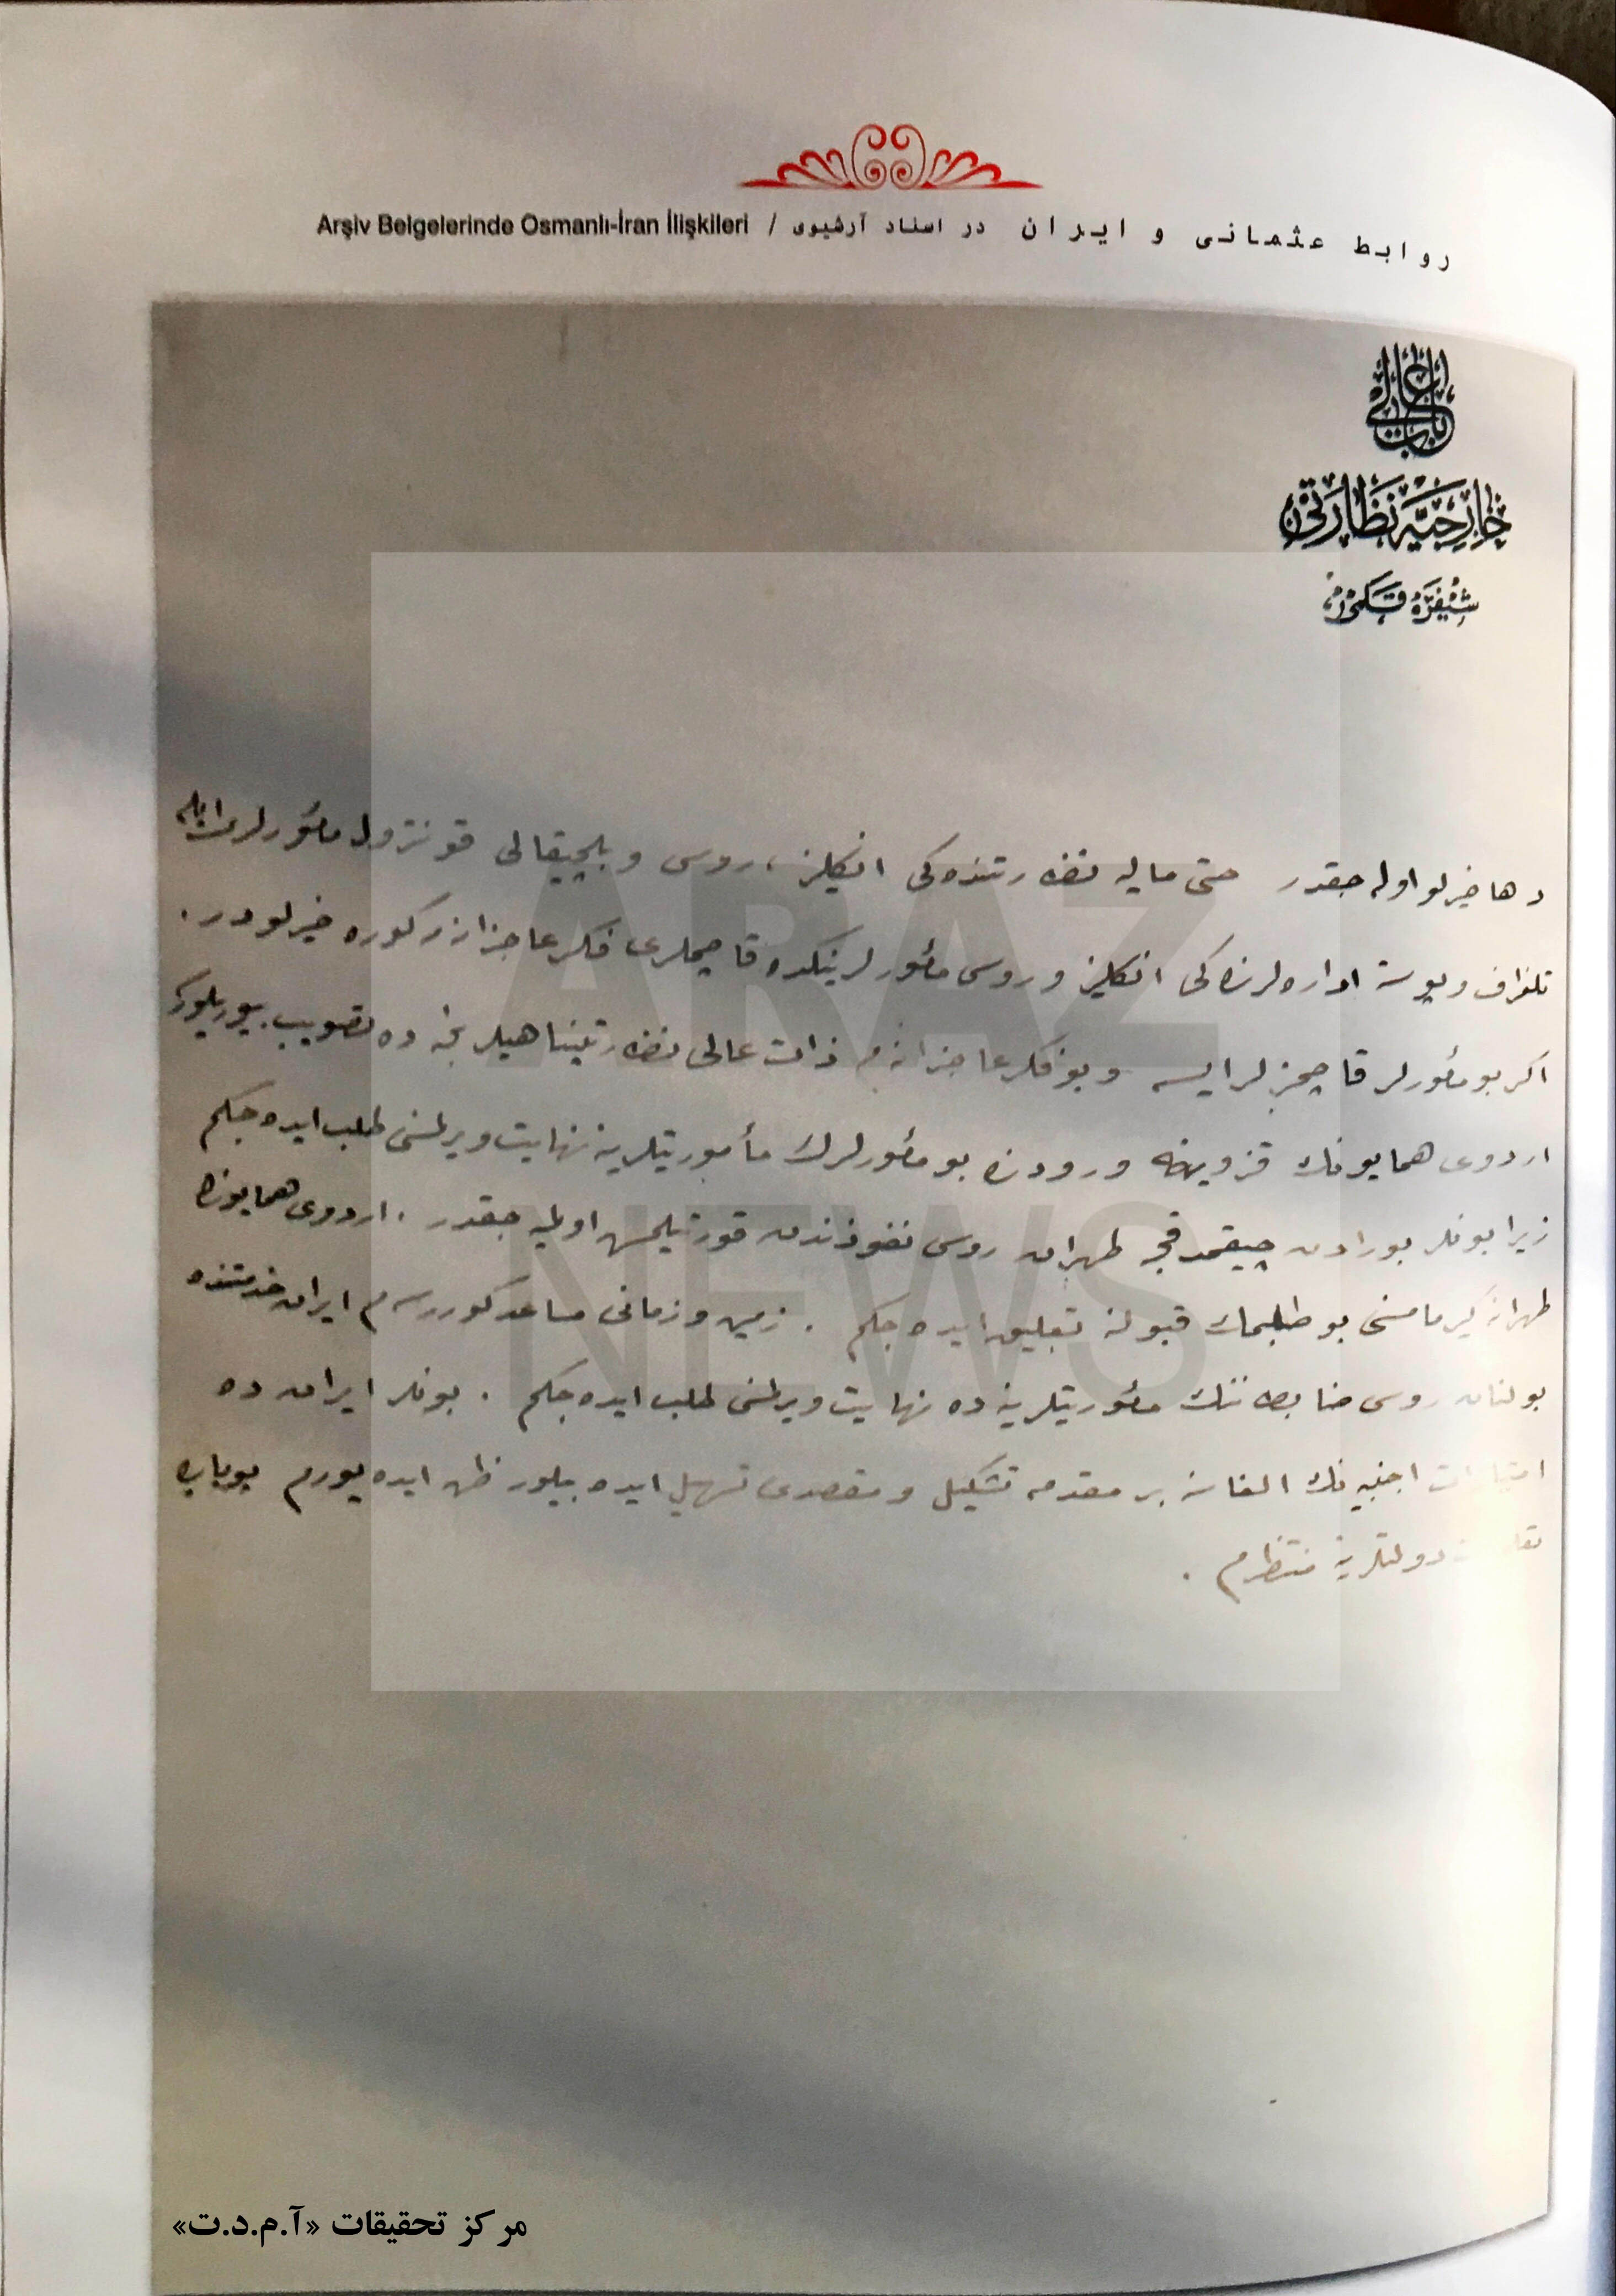 Arşiv Belgelerinde Osmanlı-İran İlişkileri / روابط عثمانی و ایران در اسناد آرشیوی
باب عالی
خارجیه نظارتی
شیفره قلمی
دها خیرلو اوله جقدر حتی مالیه نظارتنده کی انکلیز، روس و بلچیقالی قونترول مأمورلری ایله
تلغراف و پوسته اداره لرنده کی انکلیز و روس مأمورلرینکده قاچملری فکر عاجزانه مه کوره خیرلودر.
اکر بو مأمورلر قاچمزلر ایسه و بو فکر عاجزانه م ذات عالی نظارتپناهیلرنجه ده تصویب بیوریلورسه
اردوی همایونك قزوینه ورودنده بو مأمورلرك مأموریتلرینه نهایت ویرلمسنی طلب ایده جکم
زیرا بونلر بورادن چیقمدقجه طهران روس نفوذندن قورتیلمش اولمیه جقدر. اردوی همایونك
طهرانه کیرمامسنی بو طلبمك قبولنه تعلیق ایده جکم. زمین و زمانی مساعد کوررسه م ایران خدمتنده
بولنان روس ضابطاننك مأموریتلرینه ده نهایت ویرلمسنی طلب ایده جکم. بونلر ایران ده
اجنبیه نك الغاسنه بر مقدمه تشکیل و مقصدی تسهیل ایده بیلور ظن ایده یورم بوبابده
دولتلرینه منتظرم.
ARAZ
NEWS
مرکز تحقیقات «آ.م.د.ت»